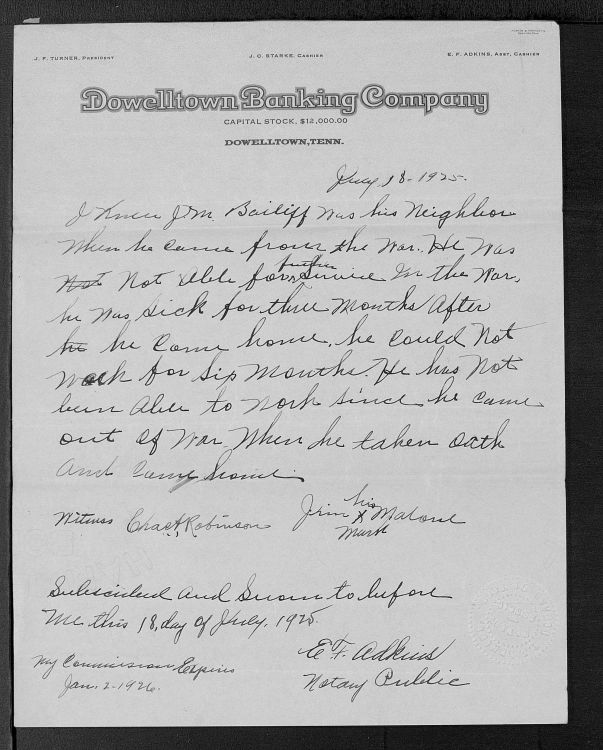 J. F. TURNER, PRESIDENT
J. C. STARKE, CASHIER
E. F. ADKINS, ASST. CASHIER
Dowelltown Banking Company
CAPITAL STOCK, $12,000.00
DOWELLTOWN, TENN.
July 18-1925-
I Knew J.M. Bailiff was his Neighbor
When he came from the War. He was
Not Not Able for further Service In the War,
he was sick for three Months After
he he Come home, he could Not
work for Six Months. He has Not
been Able to work since he came
out of War When he taken Oath
And Came home.
Witness Chas A, Robinson
Jim his X Mark Malone
Subscribed and Sworn to before
Me this 18, day of July, 1925.
My Commission Expires
Jan. 2-1926.
E F. Adkins
Notary Public